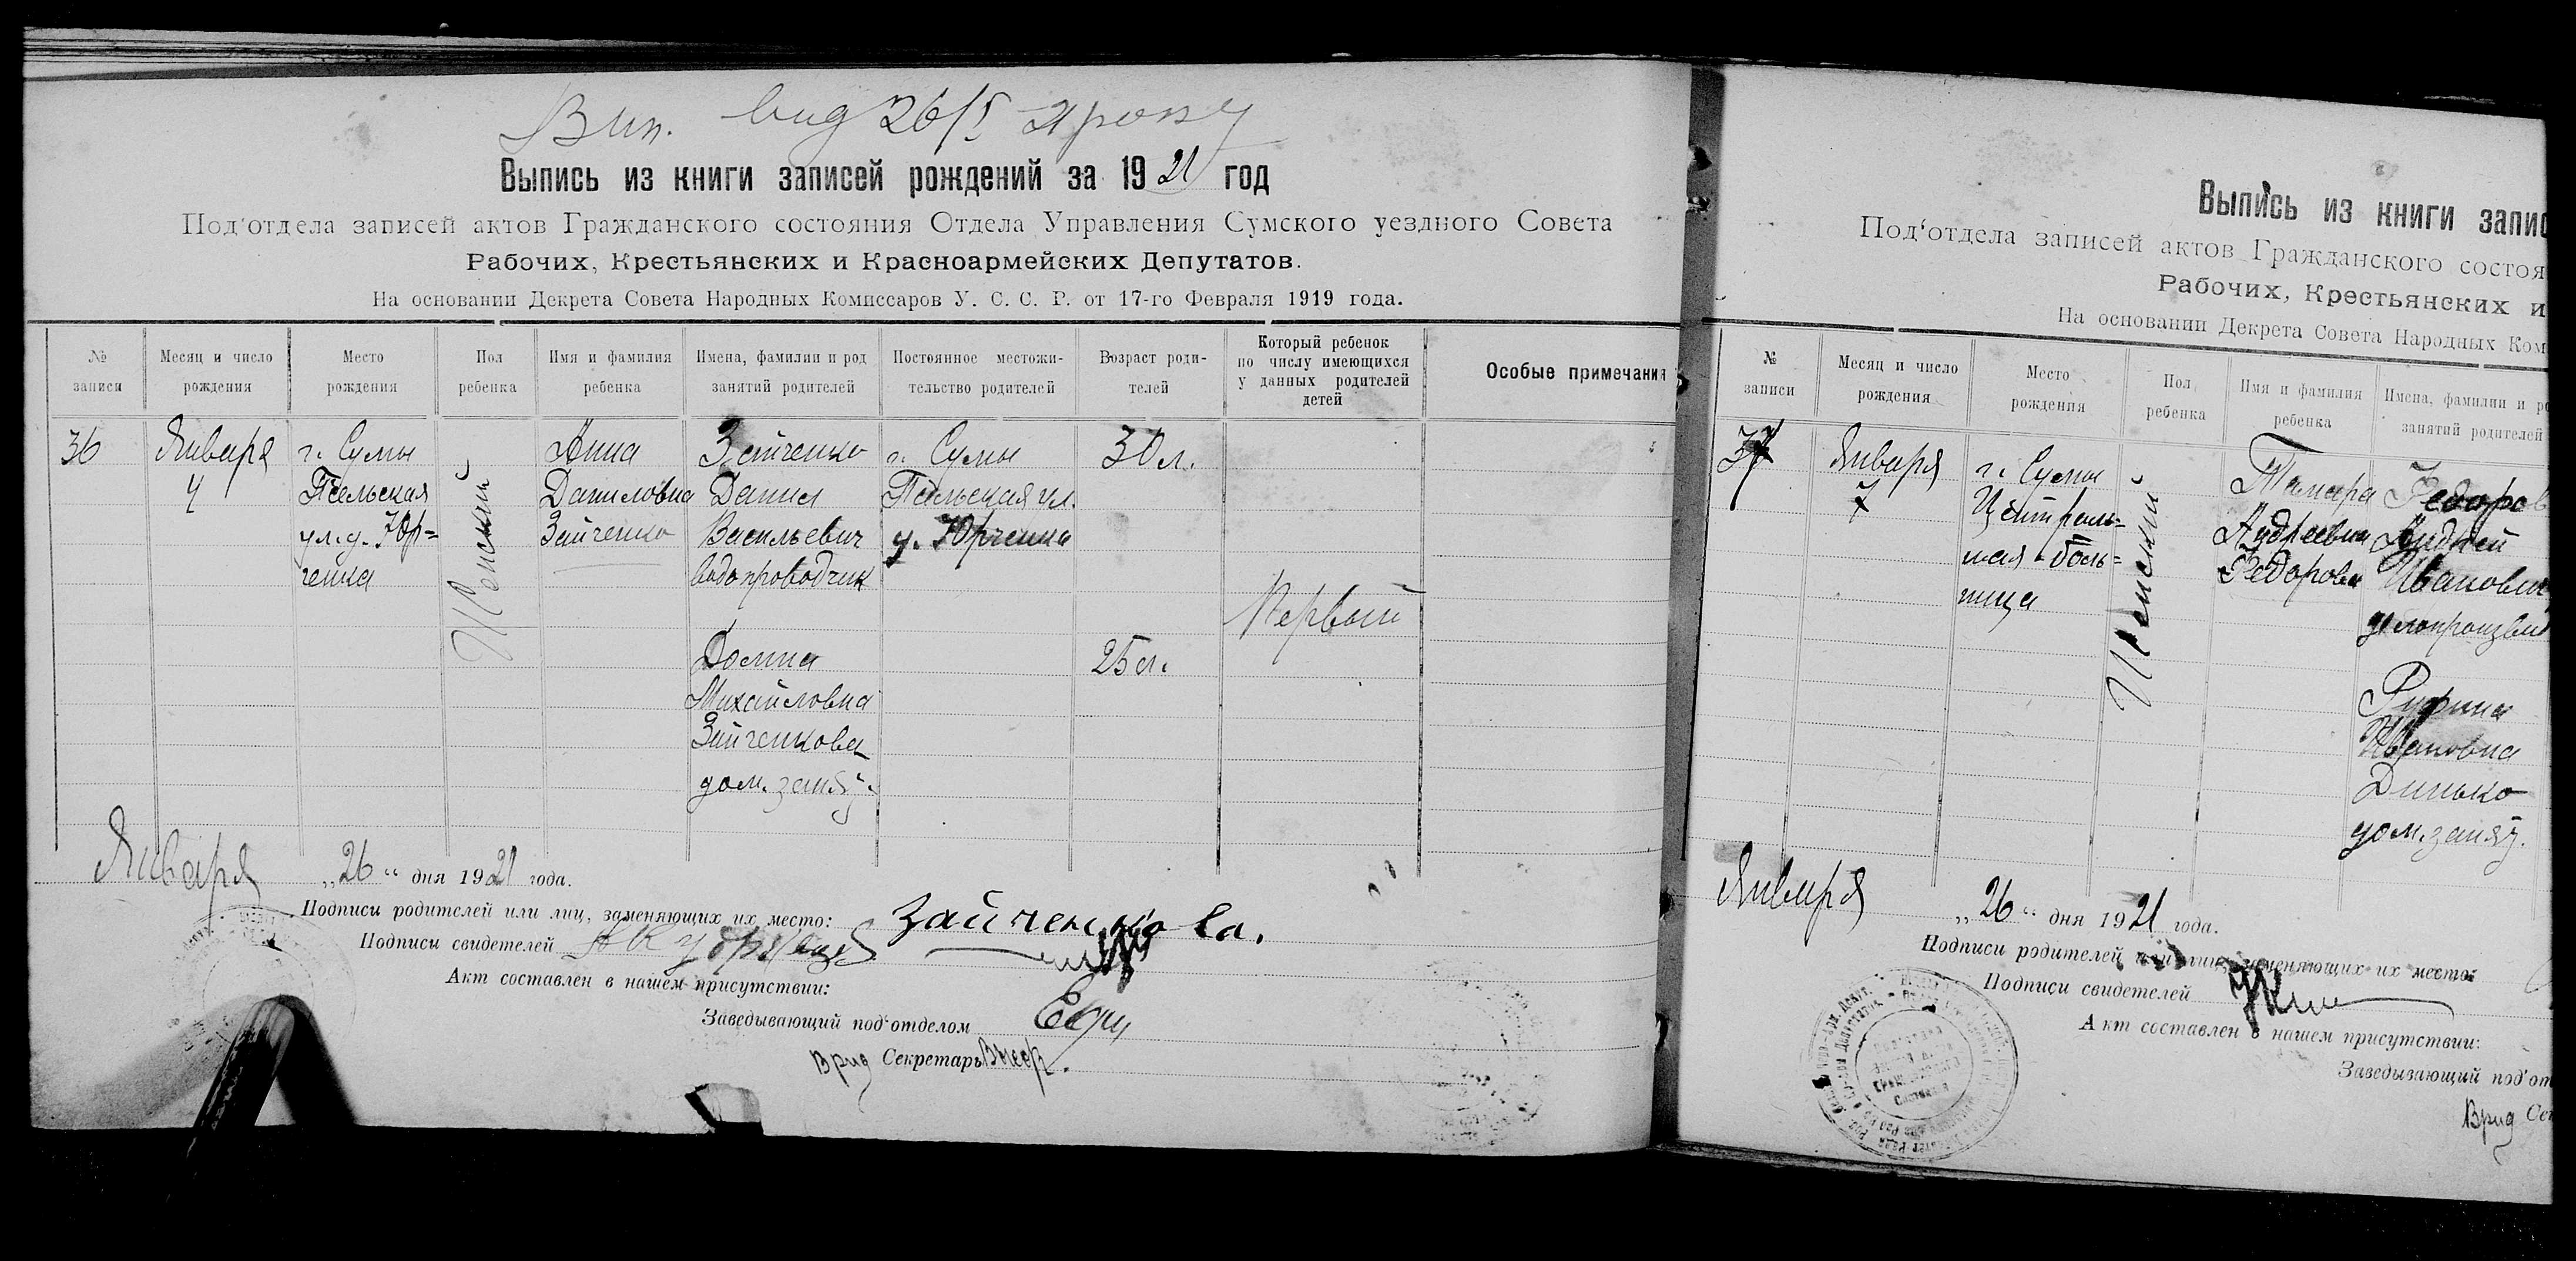 Вип. вид 26/I 21 року
Выпись из книги записей рождений за 1921 год
Под'отдела записей актов Гражданского состояния Отдела Управления Сумского уездного Совета
Рабочих, Крестьянских и Красноармейских Депутатов.
На основании Декрета Совета Народных Комиссаров У. С. С. Р. от 17-го Февраля 1919 года.
№ записи
Месяц и число рождения
Место рождения
Пол ребенка
Имя и фамилия ребенка
Имена, фамилии и род занятий родителей
Постоянное местожительство родителей
Возраст родителей
Который ребенок по числу имеющихся у данных родителей детей
Особые примечания
36
Января
4
г. Сумы
Псельская
ул. д. Юр=
ченка
Женский
Анна
Даниловна
Зайченко
Зайченко
Данил
Васильевич
водопроводчик
Домна
Михайловна
Зайченкова
дом. заняț.
г. Сумы
Псельская ул.
д. Юрченка
30 л.
25 л.
Первый
Января „26“ дня 1921 года.
Подписи родителей или лиц, заменяющих их место: Зайченкова.
Подписи свидетелей
Акт составлен в нашем присутствии:
Заведывающий под'отделом
Врид Секретарь
Выпись из книги запис
Под'отдела записей актов Гражданского состоя
Рабочих, Крестьянских и
На основании Декрета Совета Народных Ком
№ записи
Месяц и число рождения
Место рождения
Пол ребенка
Имя и фамилия ребенка
Имена, фамилии и ро
занятий родителей
37
Января
7
г. Сумы
Централь=
ная боль=
ница
Женский
Тамара
Андреевна
Федорова
Федоров
Андрей
Иванович
делопроизвод
Руфина
Ивановна
Динько
дом. заняț.
Января „26“ дня 1921 года.
Подписи родителей или лиц, заменяющих их место:
Подписи свидетелей
Акт составлен в нашем присутствии:
Заведывающий под'от
Врид Се